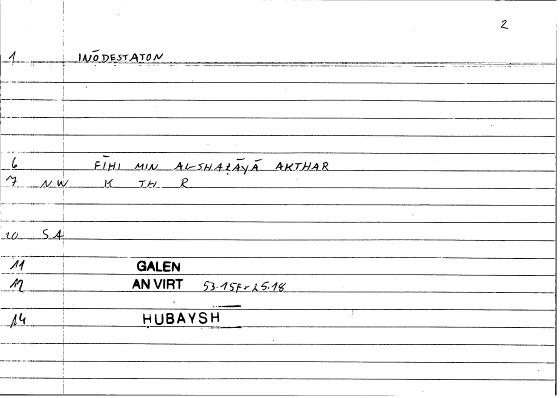 2
1 INŌDESTATON
6 FĪHI MIN AL-SHAẒĀYĀ AKTHAR
7 NW K TH R
10 SA
11 GALEN
12 AN VIRT 53.15F
14 HUBAYSH